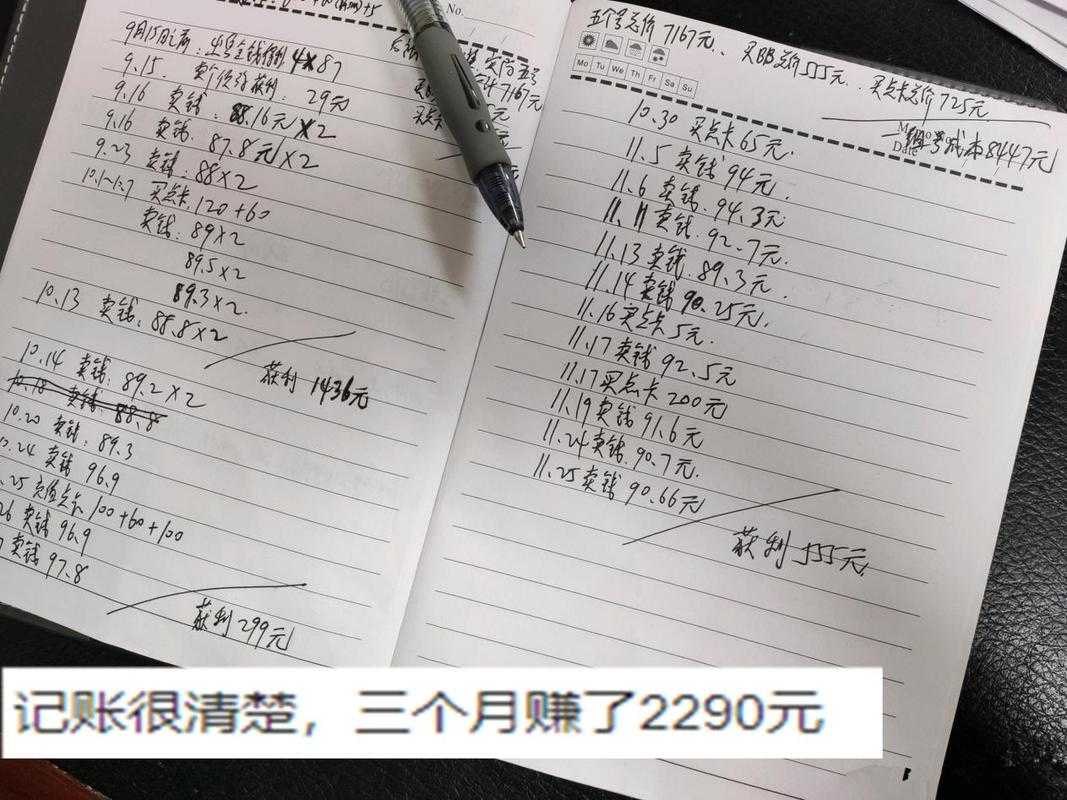 No.
9月15日之前：出号金钱得利 4×87
9.15. 卖个位得获利：29元
9.16 卖钱：88.16元×2
9.16 卖钱：87.8元×2
9.23 卖钱：88×2
10.1~1.7 买点卡 120+60
卖钱：89×2
89.5×2
89.3×2.
10.13 卖钱：88.8×2
获利 1436元
10.14 卖钱：89.2×2
10.18 卖钱：88.8
10.20 卖钱：89.3
.24 卖钱 96.9
.25 充值点卡 100+60+100
26 卖钱 96.9
卖钱 97.8
获利 299元
五个号总价 7167元、买BB总价555元、买点卡总价725元
Mo Tu We Th Fr Sa Su
一组号成本8447元
10.30 买点卡65元.
11.5 卖钱 94元.
11.6 卖钱. 94.3元
11.11 卖钱. 92.7元.
11.13 卖钱. 89.3元.
11.14 卖钱 90.25元.
11.16 买点卡 5元.
11.17 卖钱 92.5元
11.17 买点卡 200元
11.19 卖钱 91.6元
11.24 卖钱. 90.7元.
11.25 卖钱 90.66元
获利 555元.
记账很清楚，三个月赚了2290元